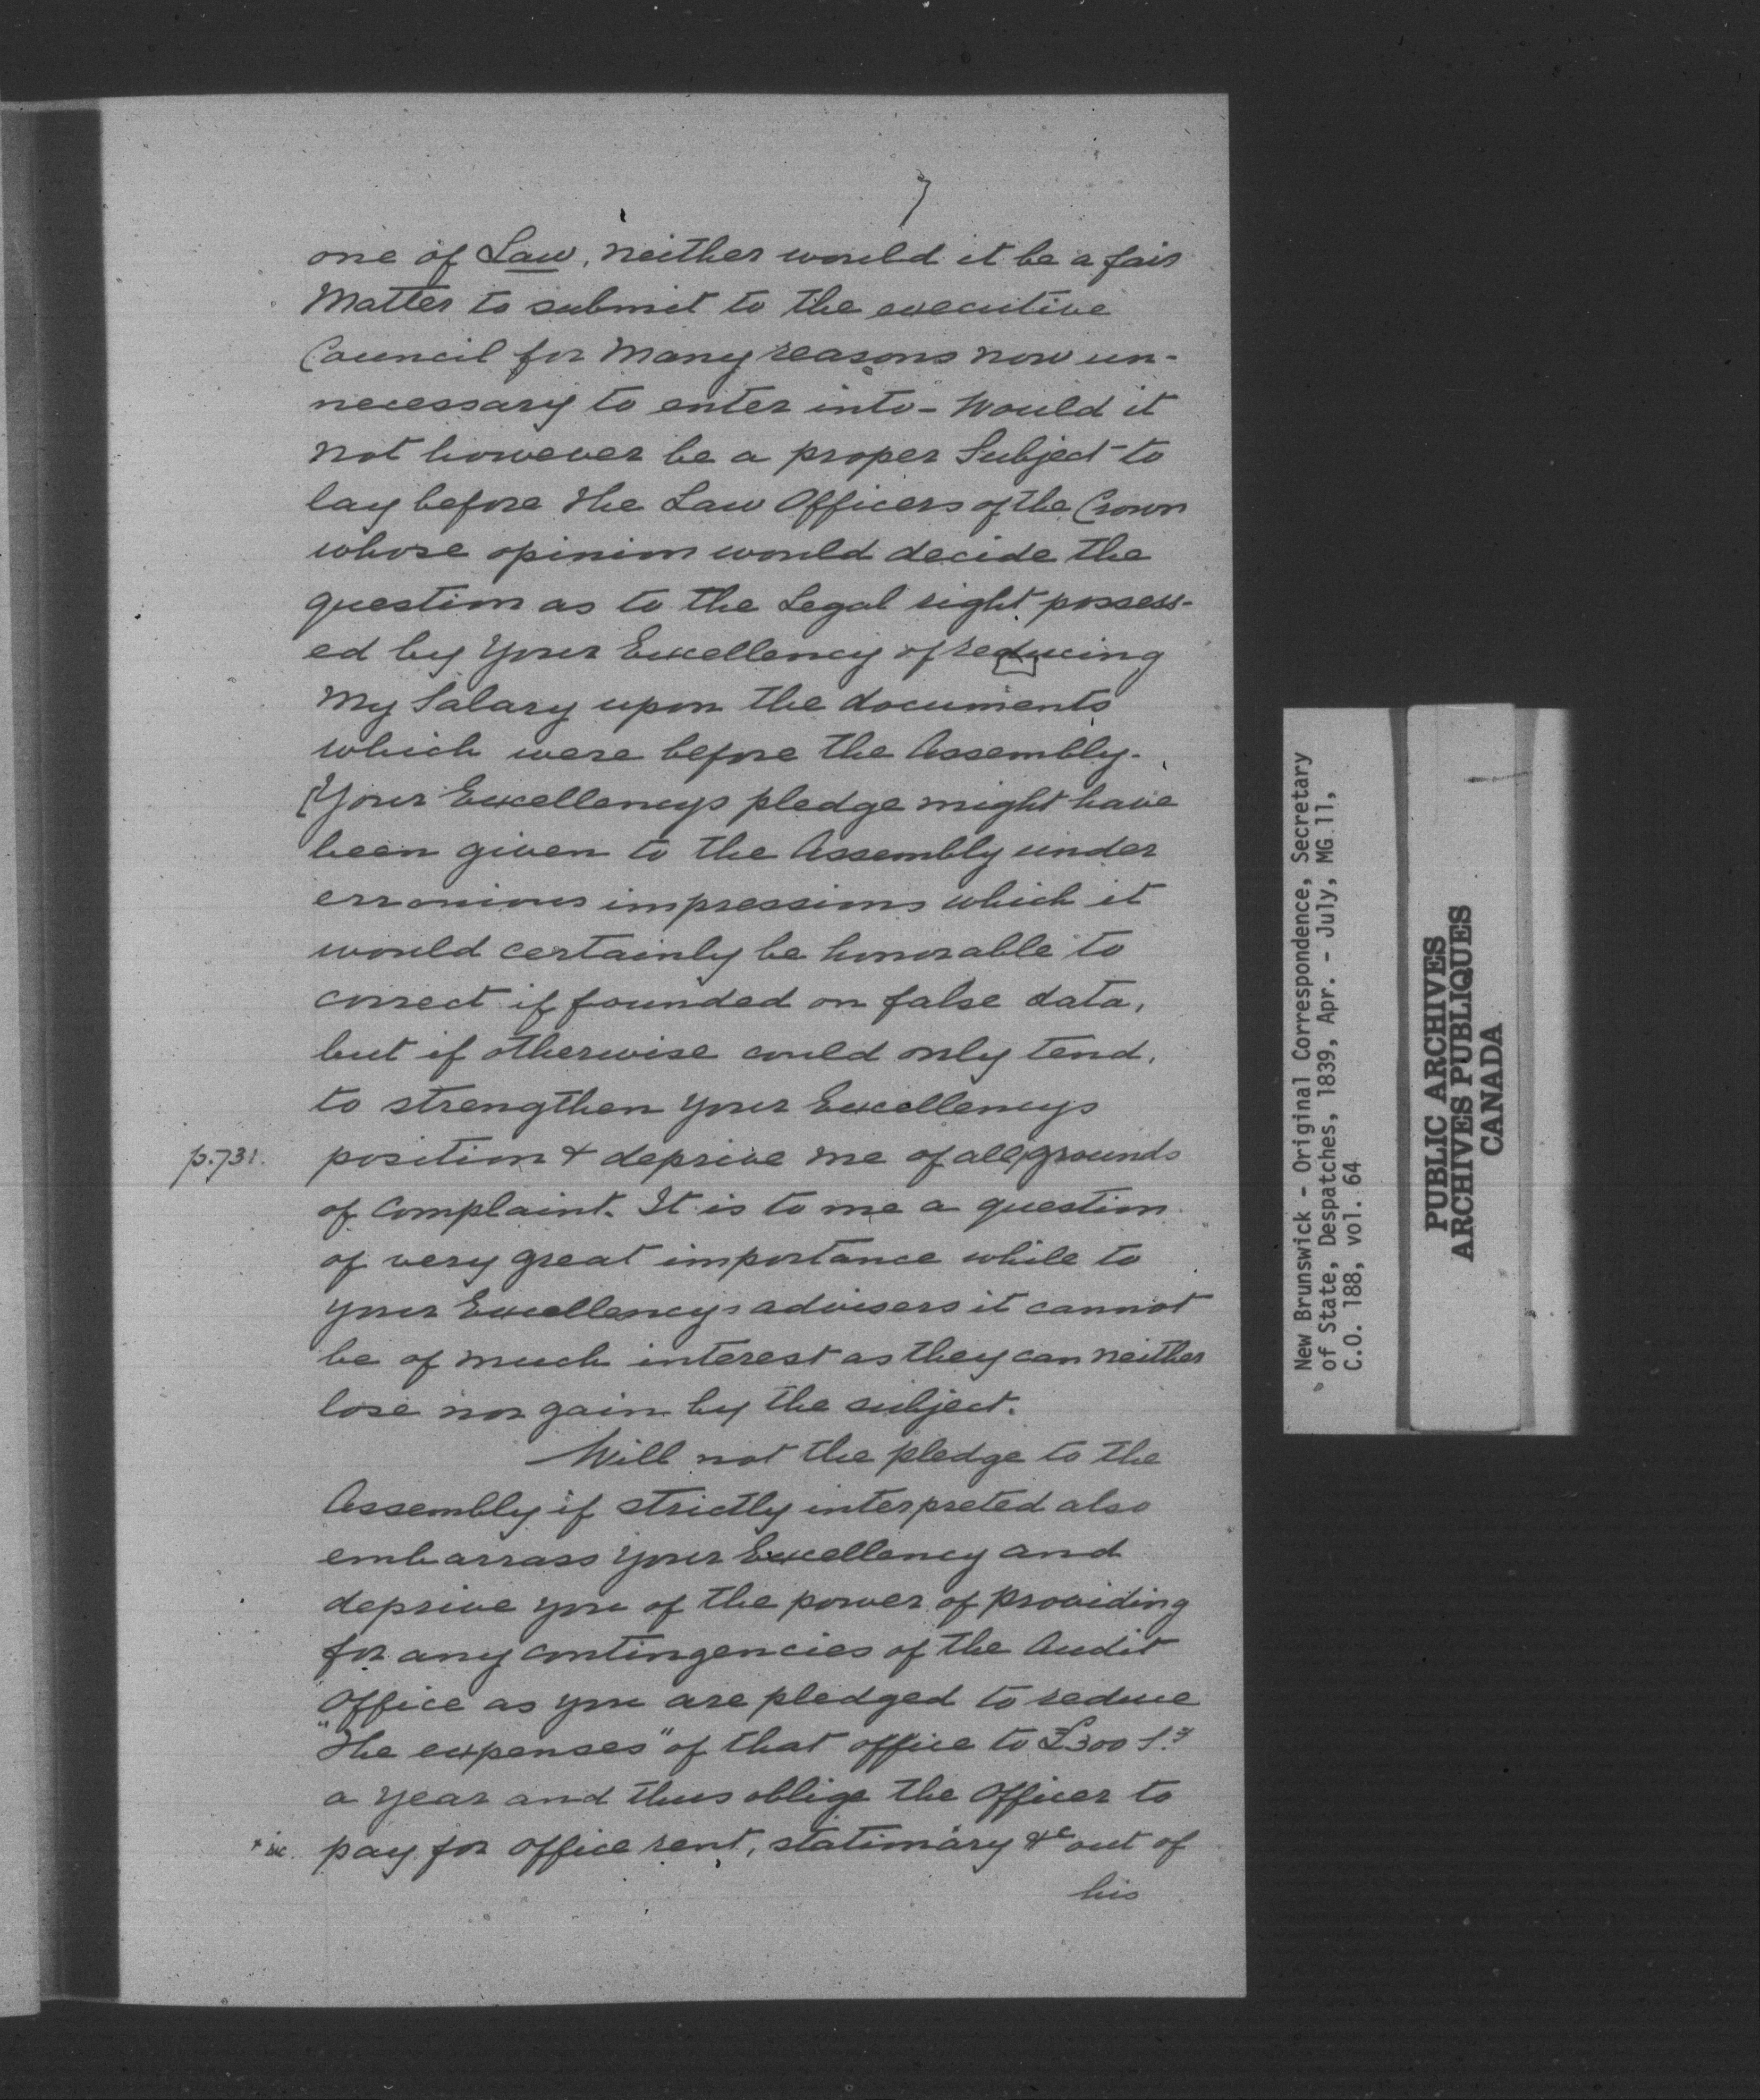 7
one of Law, neither would it be a fair
Matter to submit to the executive
Council for Many reasons now un-
necessary to enter into - Would it
not however be a proper Subject to
lay before the Law Officers of the Crown
whose opinion would decide the
question as to the Legal right possess-
ed by Your Excellency of reducing
My Salary upon the documents
which were before the Assembly.
[Your Excellencys pledge might have
been given to the Assembly under
erronious impressions which it
would certainly be honorable to
correct if founded on false data,
but if otherwise could only tend,
to strengthen your Excellencys
p.731. position & deprive me of all grounds
of Complaint. It is to me a question
of very great importance while to
your Excellencys advisers it cannot
be of much interest as they can neither
lose nor gain by the subject.
Will not the pledge to the
Assembly if strictly interpreted also
embarrass your Excellency and
deprive you of the power of providing
for any contingencies of the Audit
Office as you are pledged to reduce
"the expenses" of that office to £300
a year and thus oblige the Officer to
pay for office rent, stationary &c out of
his
New Brunswick - Original Correspondence, Secretary
of State, Despatches, 1839, Apr. - July, MG 11,
C.O. 188, vol. 64
PUBLIC ARCHIVES
ARCHIVES PUBLIQUES
CANADA